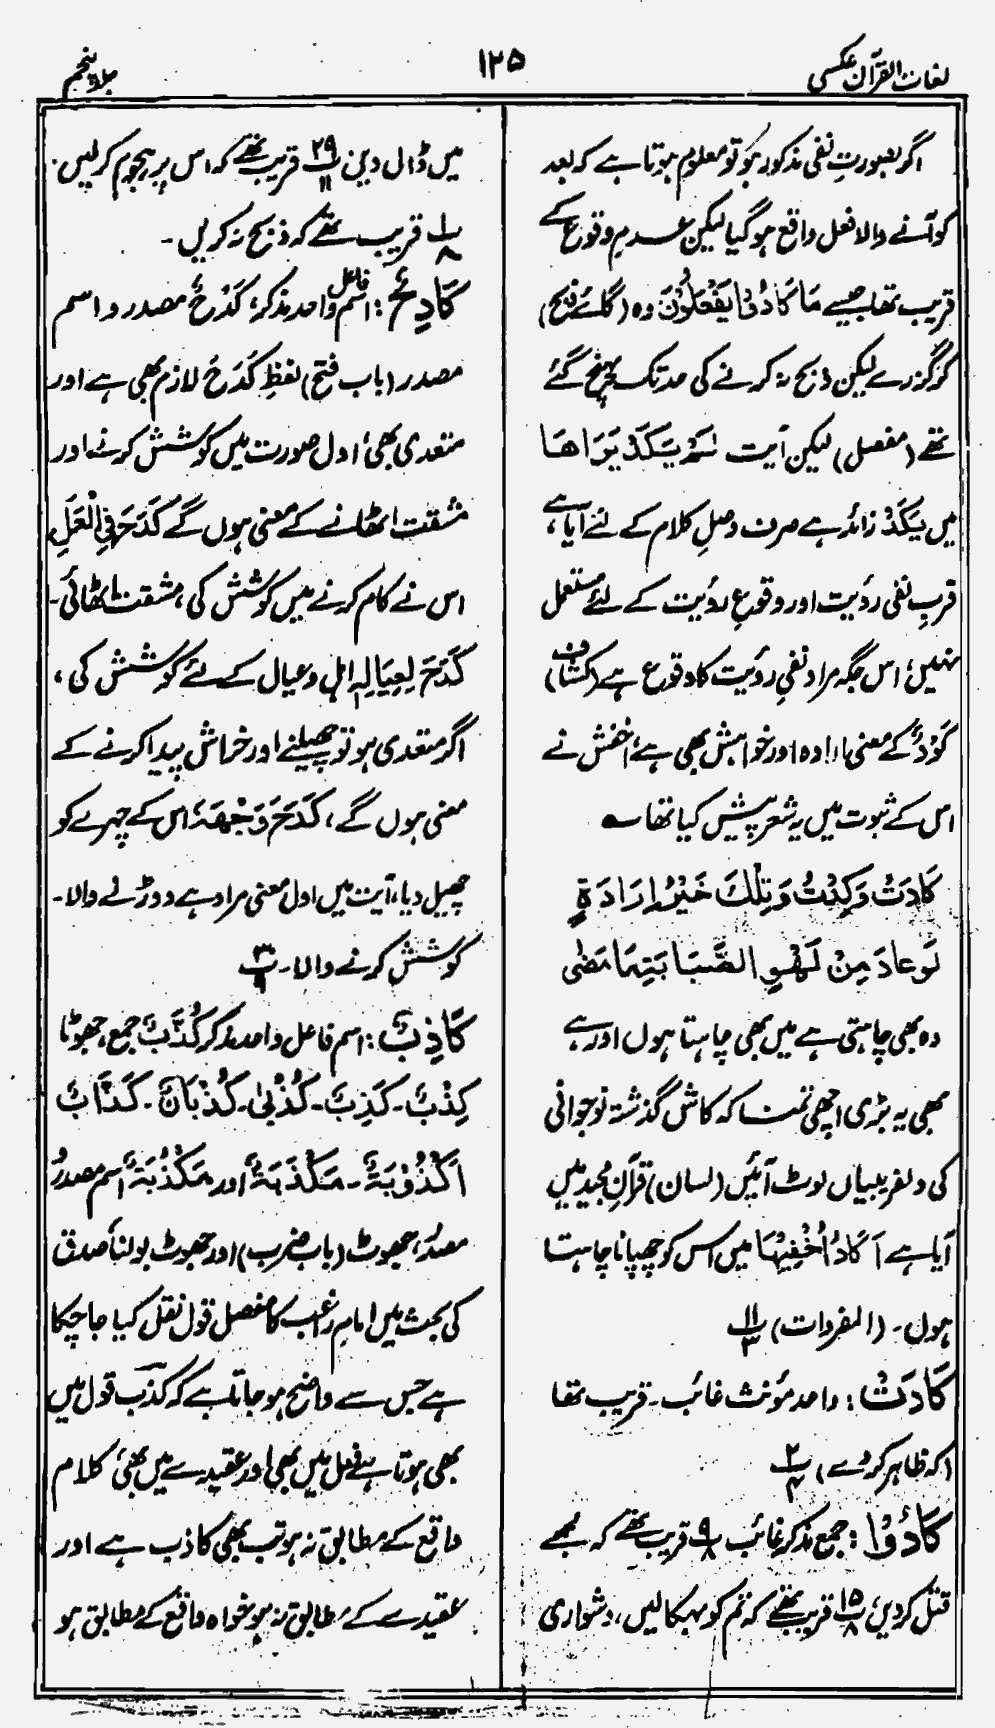 لغات القرآن عکسی
۱۲۵
جلد پنجم
اگر بصورتِ نفی مذکور ہو تو معلوم ہوتا ہے کہ بعد
کو آنے والا فعل واقع ہوگیا لیکن عدمِ وقوع کے
قریب تھا جیسے مَا کَادُوْا یَفْعَلُوْنَ وہ (گائے ذبح)
کر گزرے لیکن ذبح نہ کرنے کی حد تک پہنچ گئے
تھے (مفصل) لیکن آیت لَمْ یَکَدْ یَرَاهَا
میں یَکَدْ زائد ہے صرف وصلِ کلام کے لئے آیا ہے،
قربِ نفی رؤیت اور وقوعِ رؤیت کے لئے مستعمل
نہیں، اس جگہ مراد نفیِ رؤیت کا وقوع ہے (کشاف)
کَوْدٌ کے معنی ارادہ اور خواہش بھی ہے، اخفش نے
اس کے ثبوت میں یہ شعر پیش کیا تھا ؎
کَادَتْ وَکِدْتُ وَتِلْكَ خَیْرُ اِرَادَةٍ
لَوْ عَادَ مِنْ لَهْوِ الصَّبَابَةِ مَا مَضٰی
وہ بھی چاہتی ہے میں بھی چاہتا ہوں اور ہے
بھی یہ بڑی اچھی تمنا کہ کاش گذشتہ نوجوانی
کی دلفریبیاں لوٹ آئیں (لسان) قرآنِ مجید میں
آیا ہے اَکَادُ اُخْفِیْهَا میں اس کو چھپانا چاہتا
ہوں۔ (المفردات) پ ۱۱/۳
کَادَتْ: واحد مؤنث غائب۔ قریب تھا
(کہ ظاہر کردے) پ ۲/۴
کَادُوْا: جمع مذکر غائب پ ۹/۸ قریب تھے کہ مجھے
قتل کردیں، پ ۱۵/۸ قریب تھے کہ تم کو بہکا لیں، دشواری
میں ڈال دیں پ ۲۹/۱۱ قریب تھے کہ اس پر ہجوم کرلیں۔
پ ۱/۸ قریب تھے کہ ذبح نہ کریں۔
کَادِحٌ: اسم فاعل واحد مذکر، کَدْحٌ مصدر و اسم
مصدر (باب فتح) لفظِ کَدَحَ لازم بھی ہے اور
متعدی بھی، اول صورت میں کوشش کرنے اور
مشقت اٹھانے کے معنی ہوں گے کَدَحَ فِی الْعَمَلِ
اس نے کام کرنے میں کوشش کی، مشقت اٹھائی۔
کَدَحَ لِعِیَالِہٖ اہل و عیال کے لئے کوشش کی،
اگر متعدی ہو تو چھیلنے اور خراش پیدا کرنے کے
معنی ہوں گے، کَدَحَ وَجْهَهٗ اس کے چہرے کو
چھیل دیا، آیت میں اول معنی مراد ہے دوڑنے والا۔
کوشش کرنے والا۔ پ ۳۰/۹
کَاذِبٌ: اسم فاعل واحد مذکر کُذَّبٌ جمع، جھوٹا
کِذْبٌ۔ کَذِبٌ۔ کُذْبٰی۔ کُذْبَانٌ۔ کَذَّابٌ
اُکْذُوْبَةٌ۔ مَکْذَبَةٌ اور مَکْذُبَةٌ اسم مصدر و
مصدر، جھوٹ (باب ضرب) اور جھوٹ بولنا، صدق
کی بحث میں امامِ راغب کا مفصل قول نقل کیا جا چکا
ہے جس سے واضح ہو جاتا ہے کہ کذب قول میں
بھی ہوتا ہے فعل میں بھی اور عقیدے میں بھی، کلام
واقع کے مطابق نہ ہو تب بھی کاذب ہے اور
عقیدے کے مطابق نہ ہو خواہ واقع کے مطابق ہو